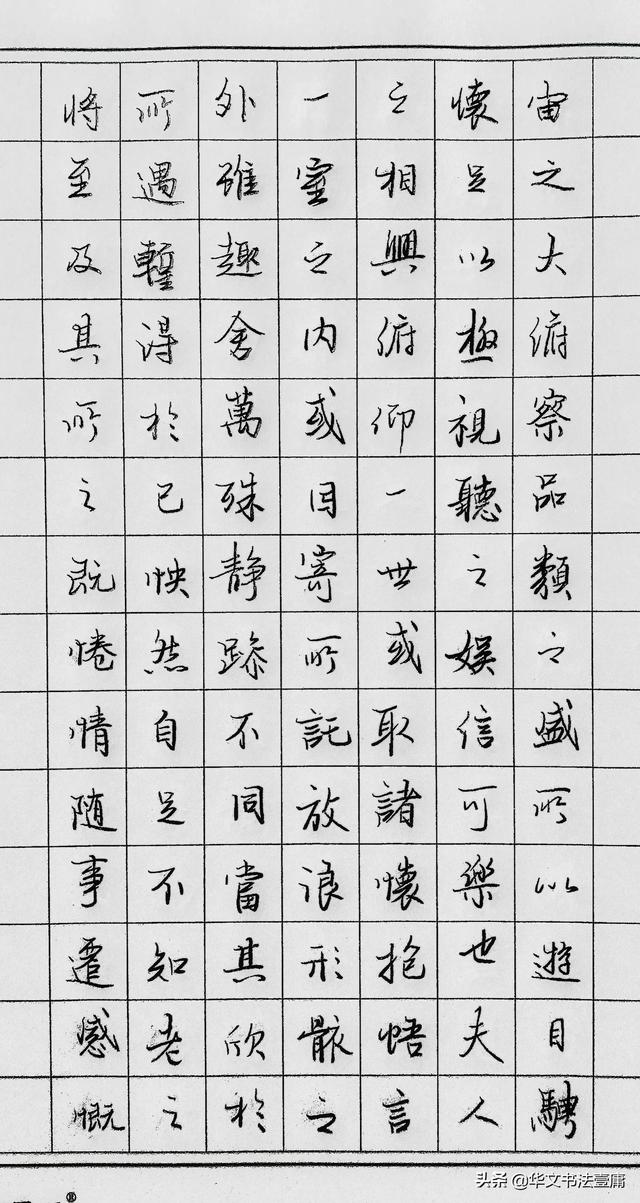 宙之大俯察品類之盛所以遊目騁
懷足以極視聽之娱信可樂也夫人
之相與俯仰一世或取諸懷抱悟言
一室之内或因寄所託放浪形骸之
外雖趣舍萬殊静躁不同當其欣於
所遇暫得於己怏然自足不知老之
將至及其所之既惓情随事遷感慨
头条 @华文书法壹庸